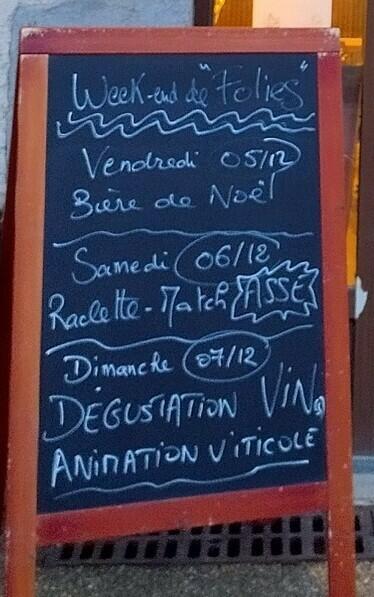 Week-end de "Folies"
Vendredi 05/12
Bière de Noël
Samedi 06/12
Raclette - Match ASSE
Dimanche 07/12
DÉGUSTATION VIN(s)
ANIMATION VITICOLE